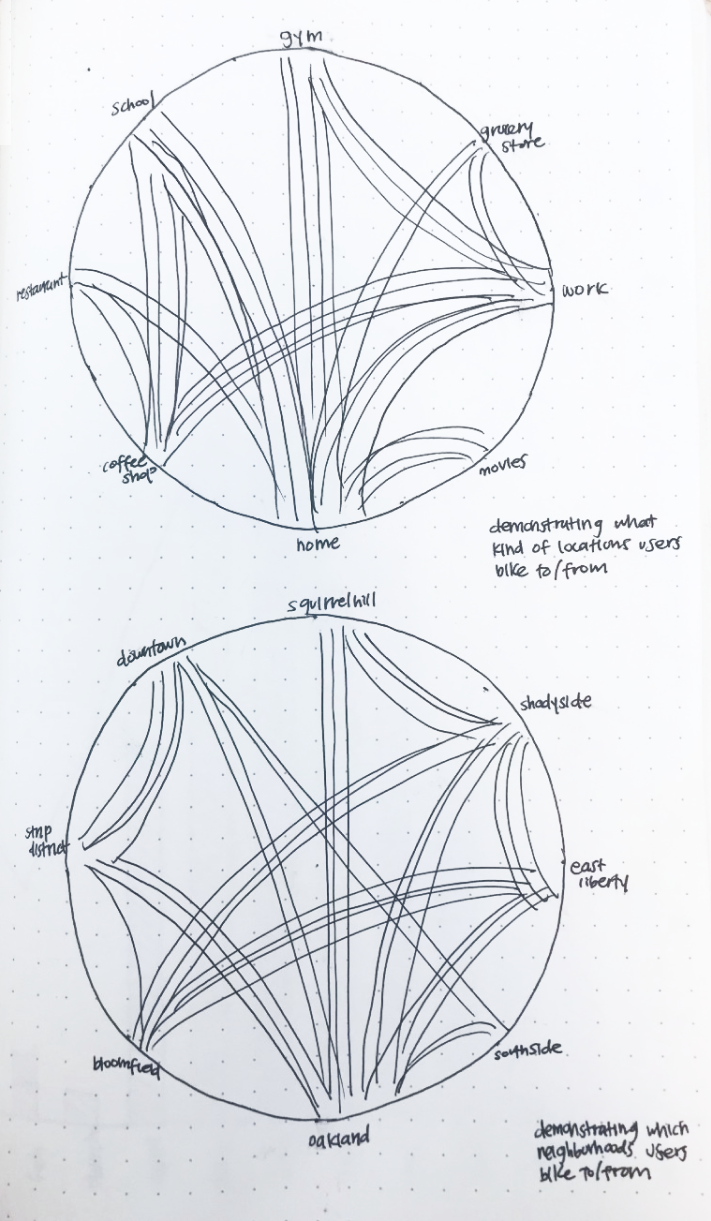 gym
school
grocery
store
restaurant
work
coffee
shop
movies
home
demonstrating what
kind of locations users
bike to/from
squirrel hill
downtown
shadyside
strip
district
east
liberty
bloomfield
southside
oakland
demonstrating which
neighborhoods users
bike to/from